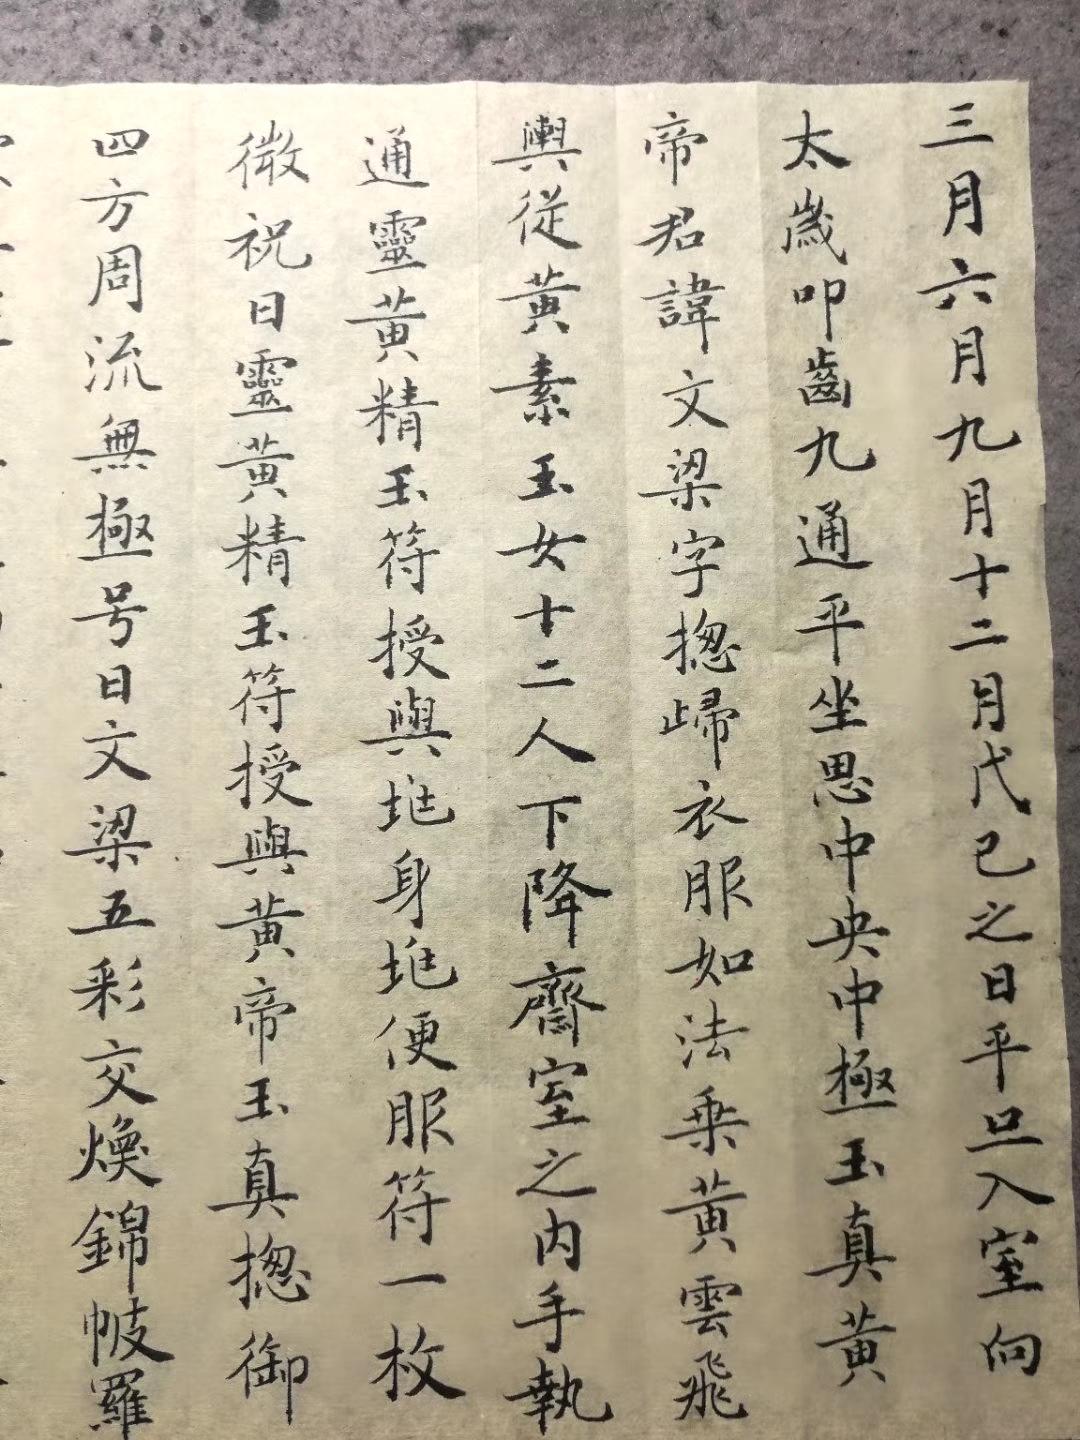 三月六月九月十二月戊己之日平旦入室向
太歲叩齒九通平坐思中央中極玉真黄
帝君諱文梁字揔歸衣服如法乗黄雲飛
輿從黄素玉女十二人下降齋室之内手執
通靈黄精玉符授與𡊠身𡊠便服符一枚
微祝曰靈黄精玉符授與黄帝玉真揔御
四方周流無極号曰文梁五彩交煥錦帔羅